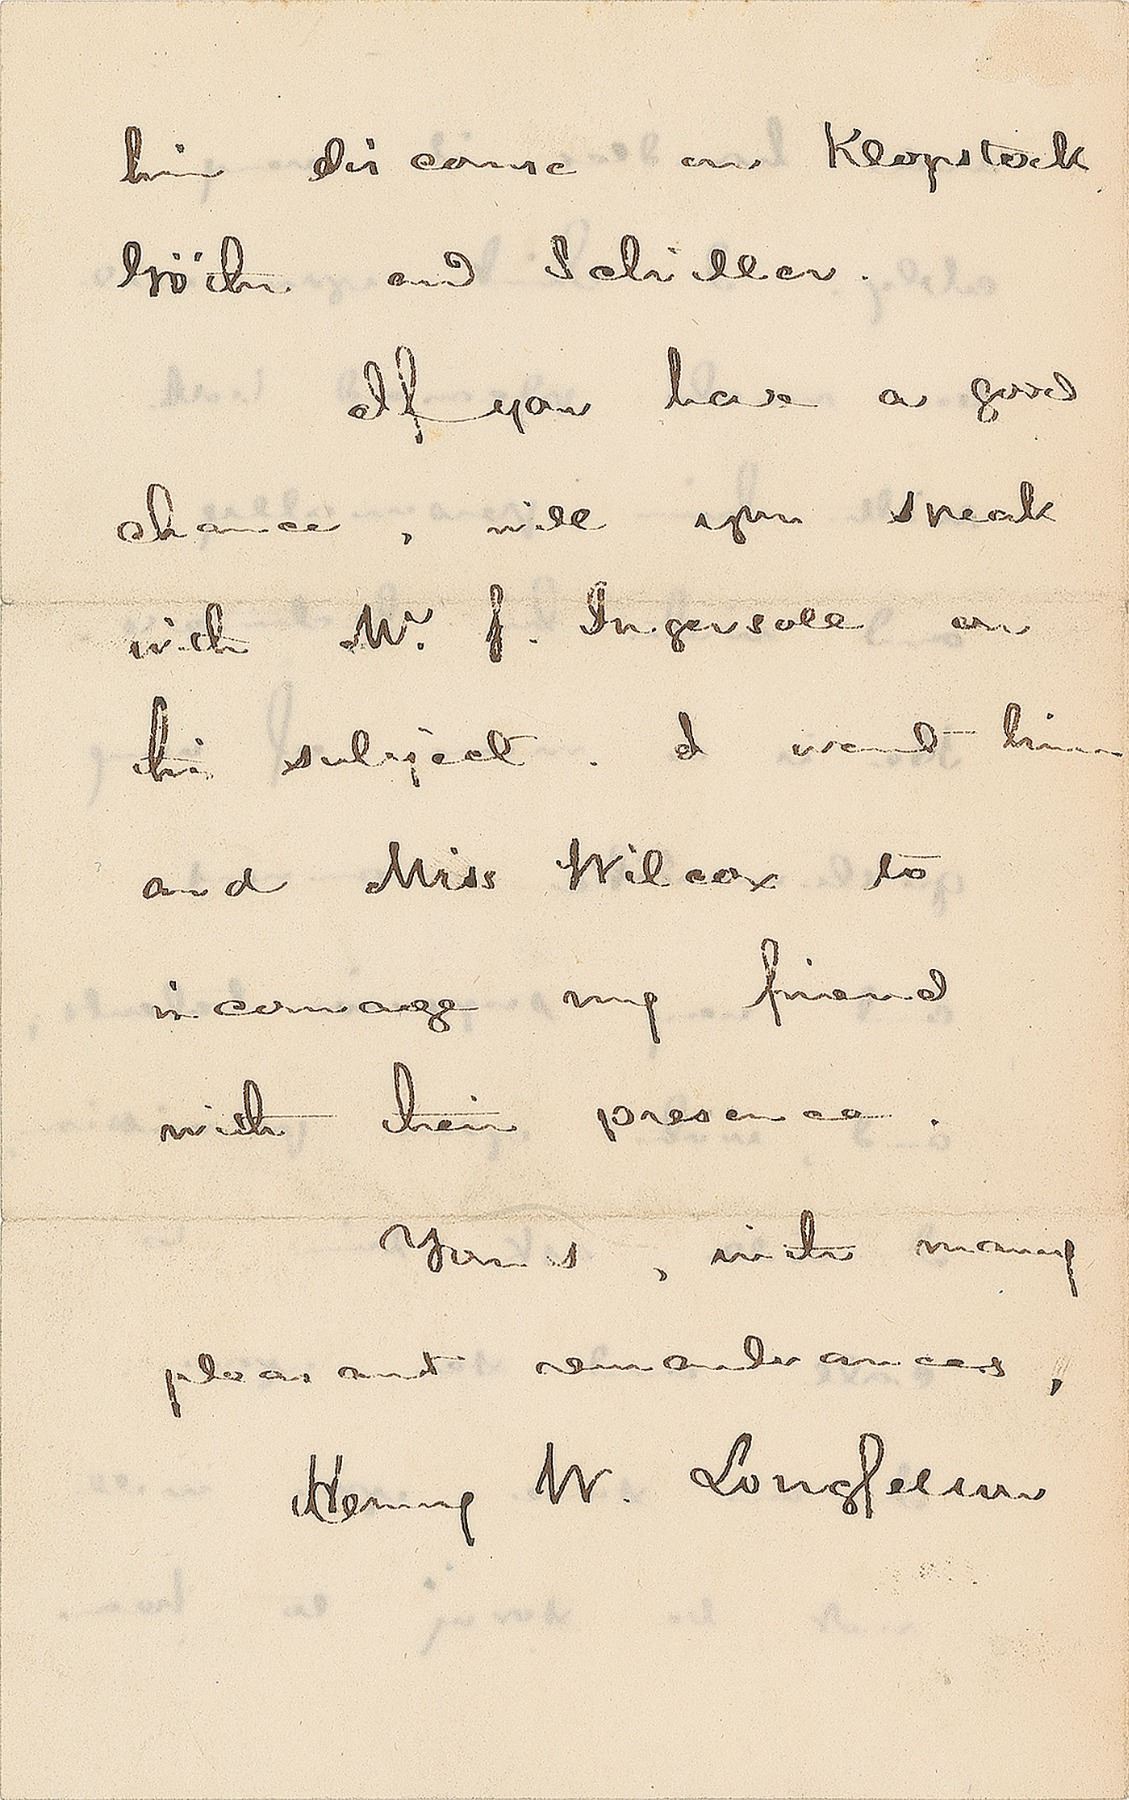 him discourse on Klopstock
Göthe and Schiller.
If you have a good
chance, will you speak
with Mr. J. Ingersoll on
this subject. I want him
and Miss Wilcox to
incourage my friend
with their presence.
Yours, with many
pleasant remembrances,
Henry W. Longfellow